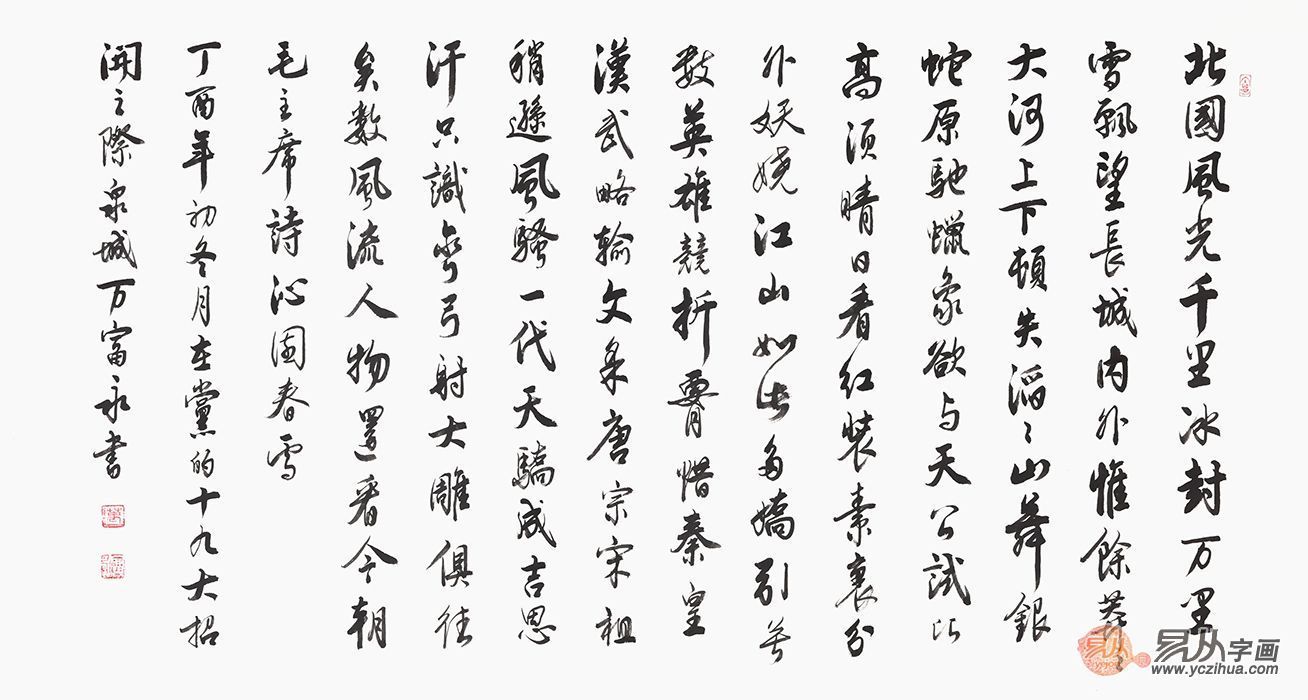 北國風光千里冰封万里
雪飄望長城內外惟餘莽〻
大河上下頓失滔〻山舞銀
蛇原馳蠟象欲与天公試比
高須晴日看紅裝素裹分
外妖嬈江山如此多嬌引無
數英雄競折腰惜秦皇
漢武略輸文采唐宗宋祖
稍遜風騷一代天驕成吉思
汗只識彎弓射大雕俱往
矣數風流人物還看今朝
毛主席詩沁園春雪
丁酉年初冬月在黨的十九大招
開之際泉城万富永書
易从字画
www.yczihua.com